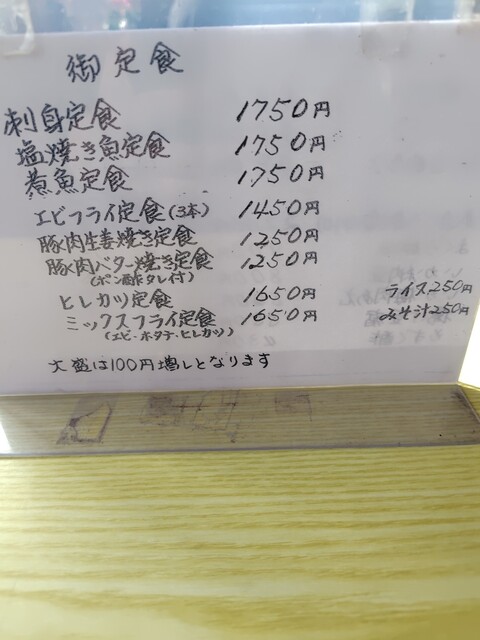 御定食
刺身定食 1750円
塩焼き魚定食 1750円
煮魚定食 1750円
エビフライ定食(3本) 1450円
豚肉生姜焼き定食 1250円
豚肉バター焼き定食 1250円
(ポン酢タレ付)
ヒレカツ定食 1650円 ライス250円
ミックスフライ定食 1650円 みそ汁250円
(エビ・ホタテ・ヒレカツ)
大盛は100円増しとなります